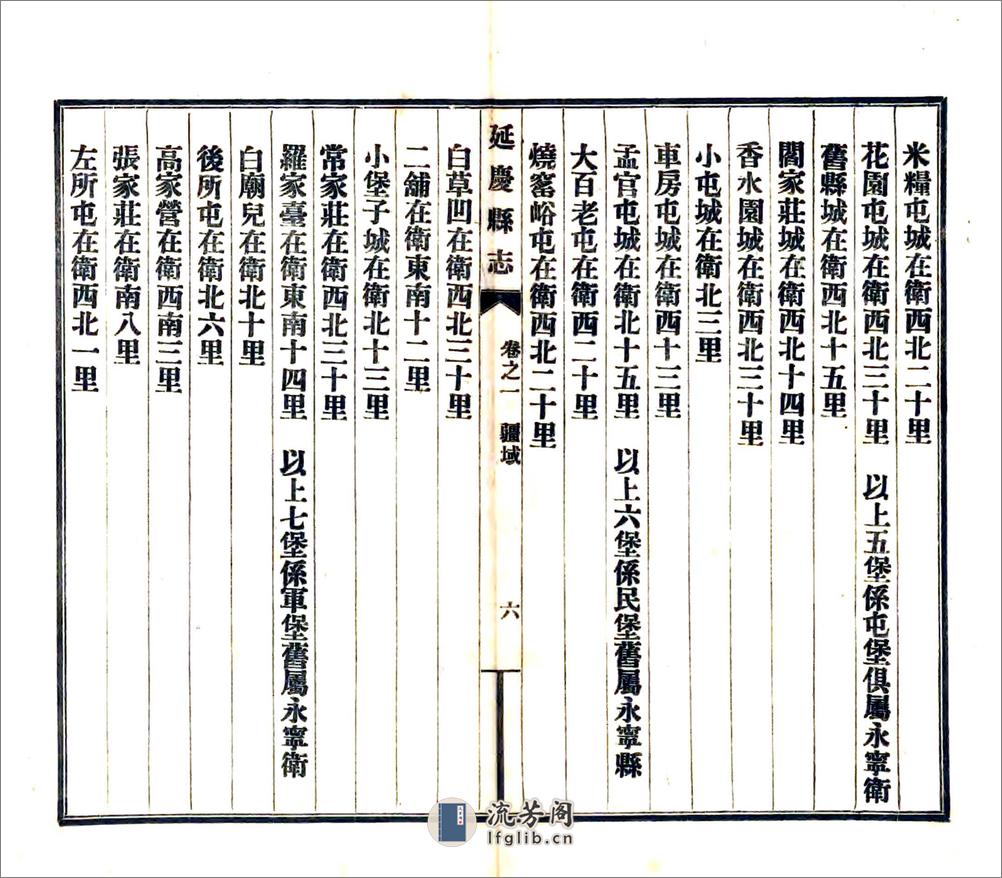 米糧屯城在衛西北二十里
花園屯城在衛西北三十里 以上五堡係屯堡俱屬永寧衛
舊縣城在衛西北十五里
閻家莊城在衛西北十四里
香水園城在衛西北三十里
小屯城在衛北三里
車房屯城在衛西十三里
孟官屯城在衛北十五里 以上六堡係民堡舊屬永寧縣
大百老屯在衛西二十里
燒窰峪屯在衛西北二十里
延慶縣志 卷之一 疆域 六
白草凹在衛西北三十里
二舖在衛東南十二里
小堡子城在衛北十三里
常家莊在衛西北三十里
羅家臺在衛東南十四里 以上七堡係軍堡舊屬永寧衛
白廟兒在衛北十里
後所屯在衛北六里
高家營在衛西南三里
張家莊在衛南八里
左所屯在衛西北一里
流芳阁
lfglib.cn